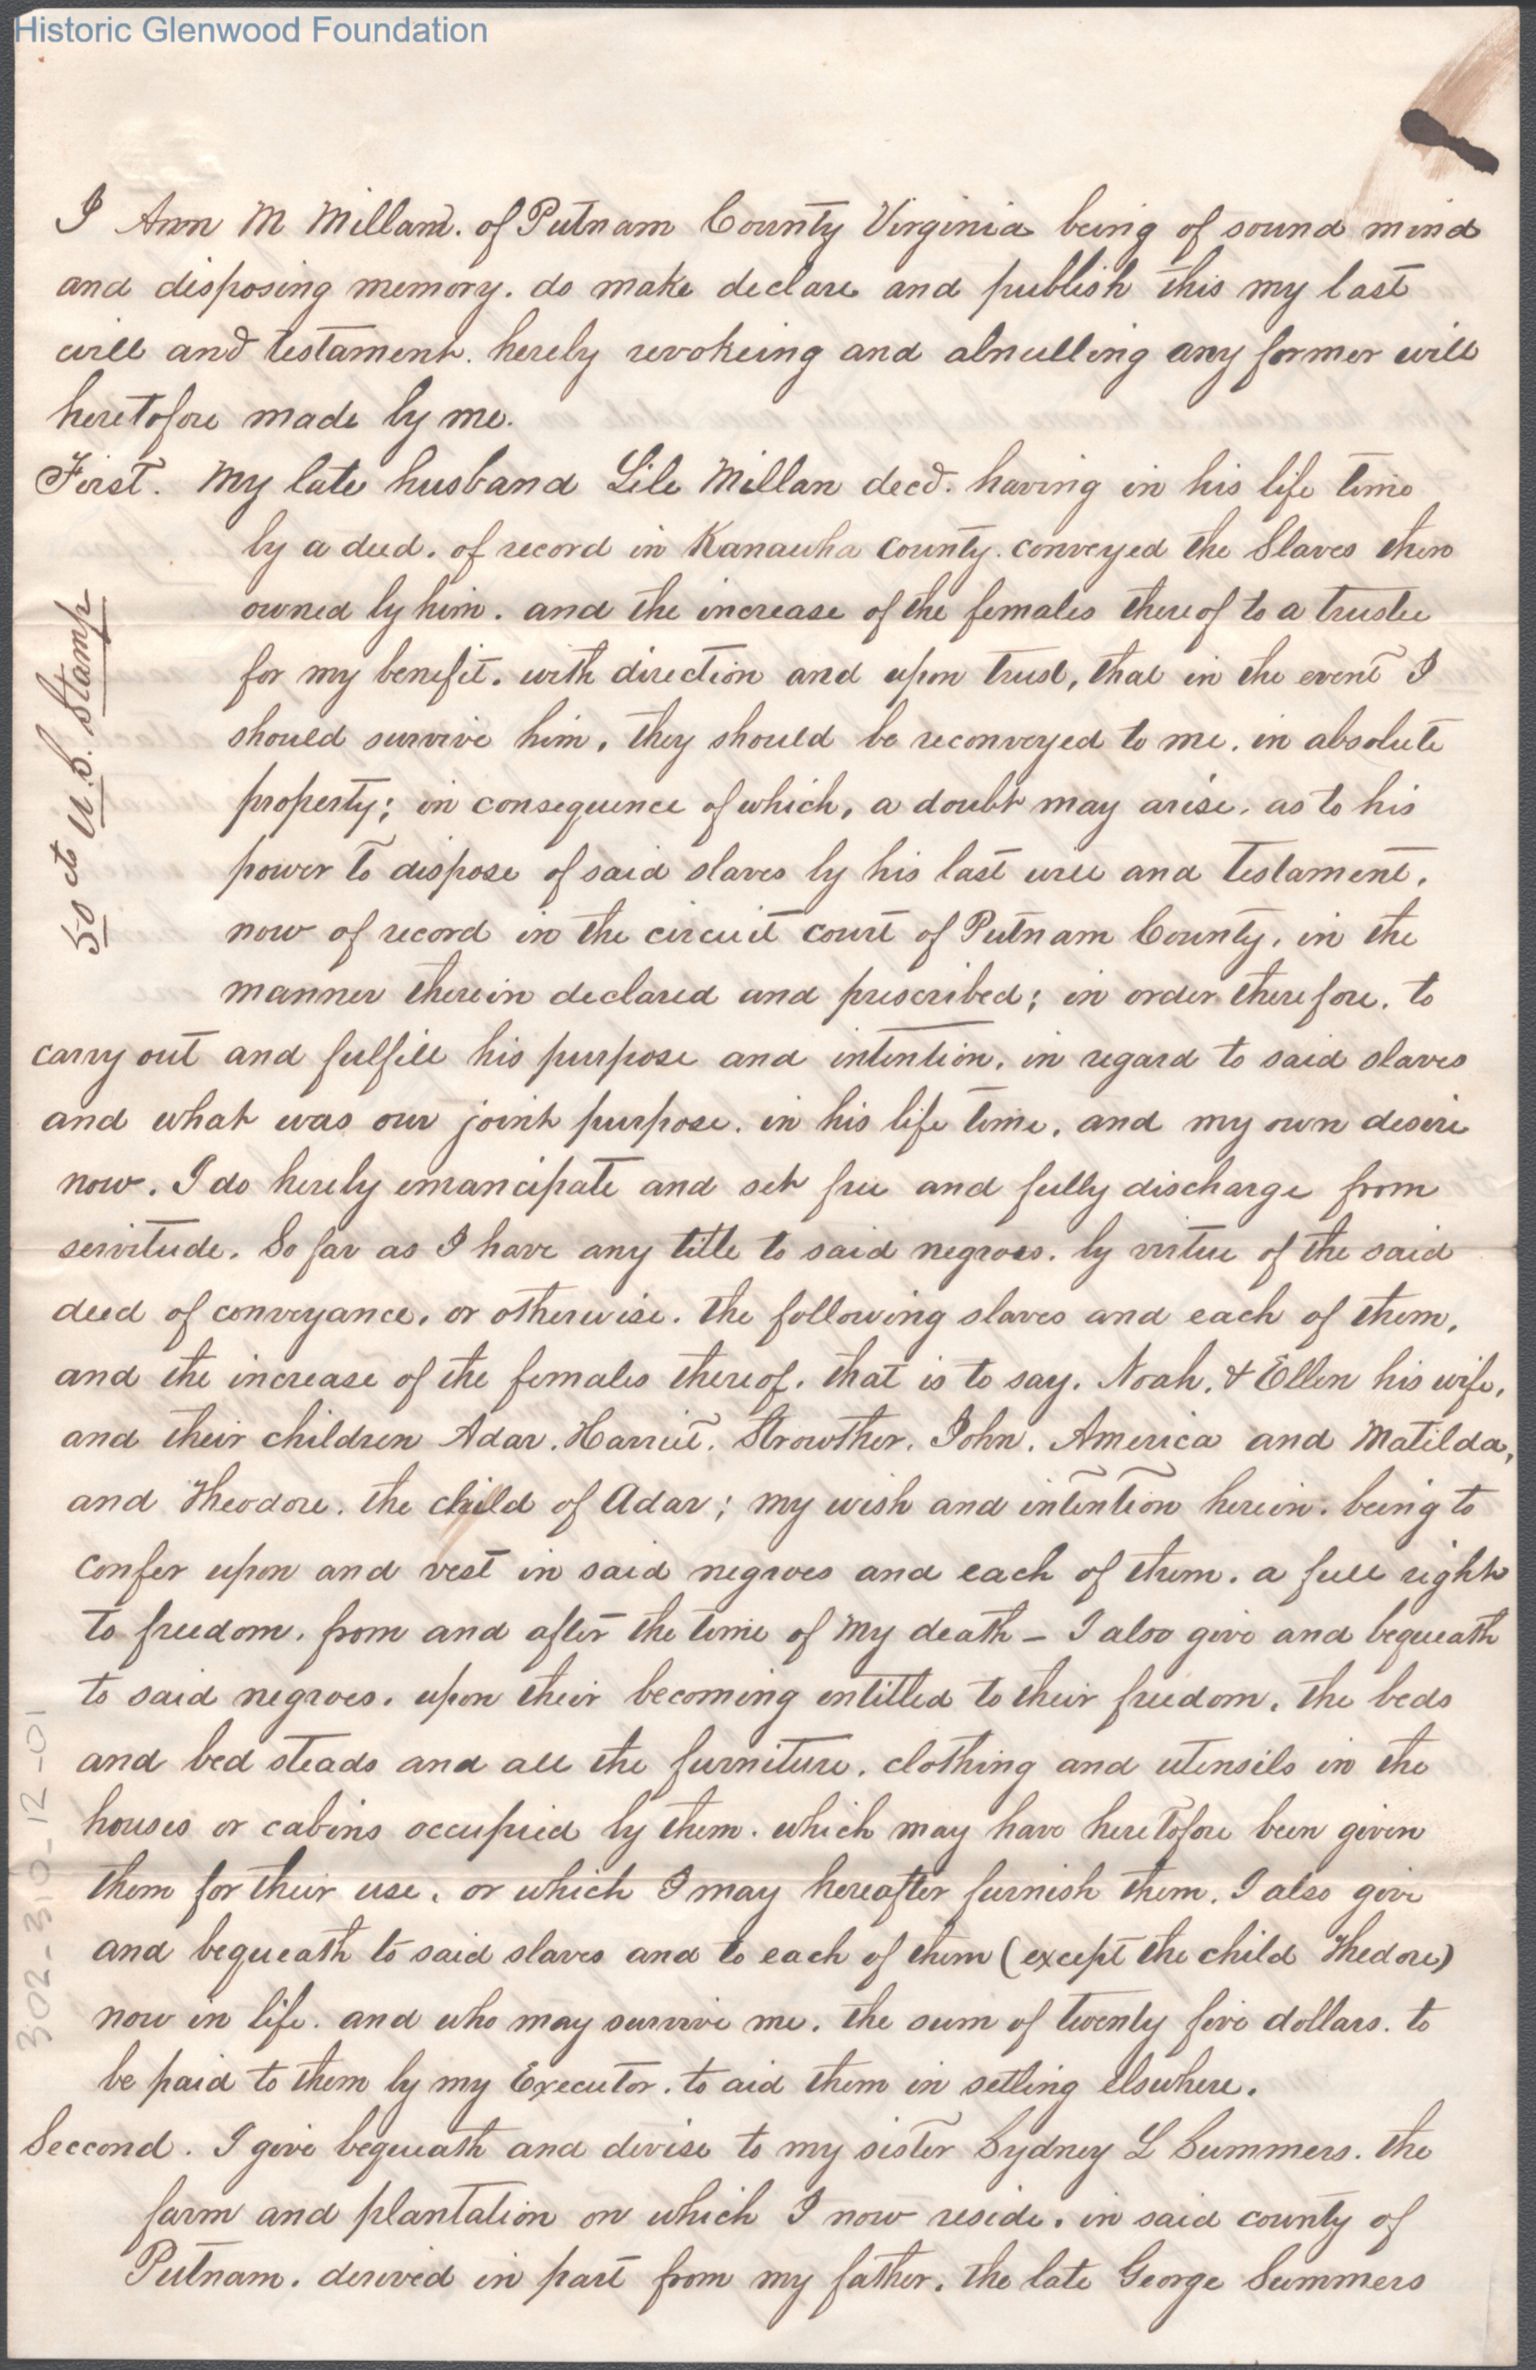 Historic Glenwood Foundation
I Ann M Millan. of Putnam County Virginia being of sound mind
and disposing memory. do make declare and publish this my last
will and testament. hereby revokeing and abnulling any former will
heretofore made by me.
First. My late husband Lile Millan decd. having in his life time
by a deed. of record in Kanawha County. conveyed the Slaves then
owned by him. and the increase of the females thereof to a trustee
for my benefit. with direction and upon trust, that in the event I
should survive him, they should be reconveyed to me. in absolute
property; in consequence of which, a doubt may arise. as to his
power to dispose of said slaves by his last will and testament.
now of record in the circuit court of Putnam County, in the
manner therein declared and prescribed; in order therefore. to
carry out and fulfill his purpose and intention. in regard to said slaves
and what was our joint purpose. in his life time. and my own desire
now. I do hereby emancipate and set free and fully discharge from
servitude. So far as I have any title to said negroes. by virtue of the said
deed of conveyance. or otherwise. the following slaves and each of them.
and the increase of the females thereof. that is to say. Noah. & Ellen his wife,
and their children Adar. Harriet. Strowther. John. America and Matilda,
and Theodore. the child of Adar; my wish and intention herein. being to
confer upon and vest in said negroes and each of them. a full right
to freedom. from and after the time of my death – I also give and bequeath
to said negroes. upon their becoming entitled to their freedom. the beds
and bed steads and all the furniture. clothing and utensils in the
houses or cabins occupied by them. which may have heretofore been given
them for their use. or which I may hereafter furnish them. I also give
and bequeath to said slaves and to each of them (except the child Thedore)
now in life. and who may survive me. the sum of twenty five dollars. to
be paid to them by my Executor. to aid them in setling elsewhere.
Seccond. I give bequeath and devise to my sister Sydney L Summers. the
farm and plantation on which I now reside. in said county of
Putnam. derived in part from my father. the late George Summers
50 cts U.S. Stamp
302-310-12-01